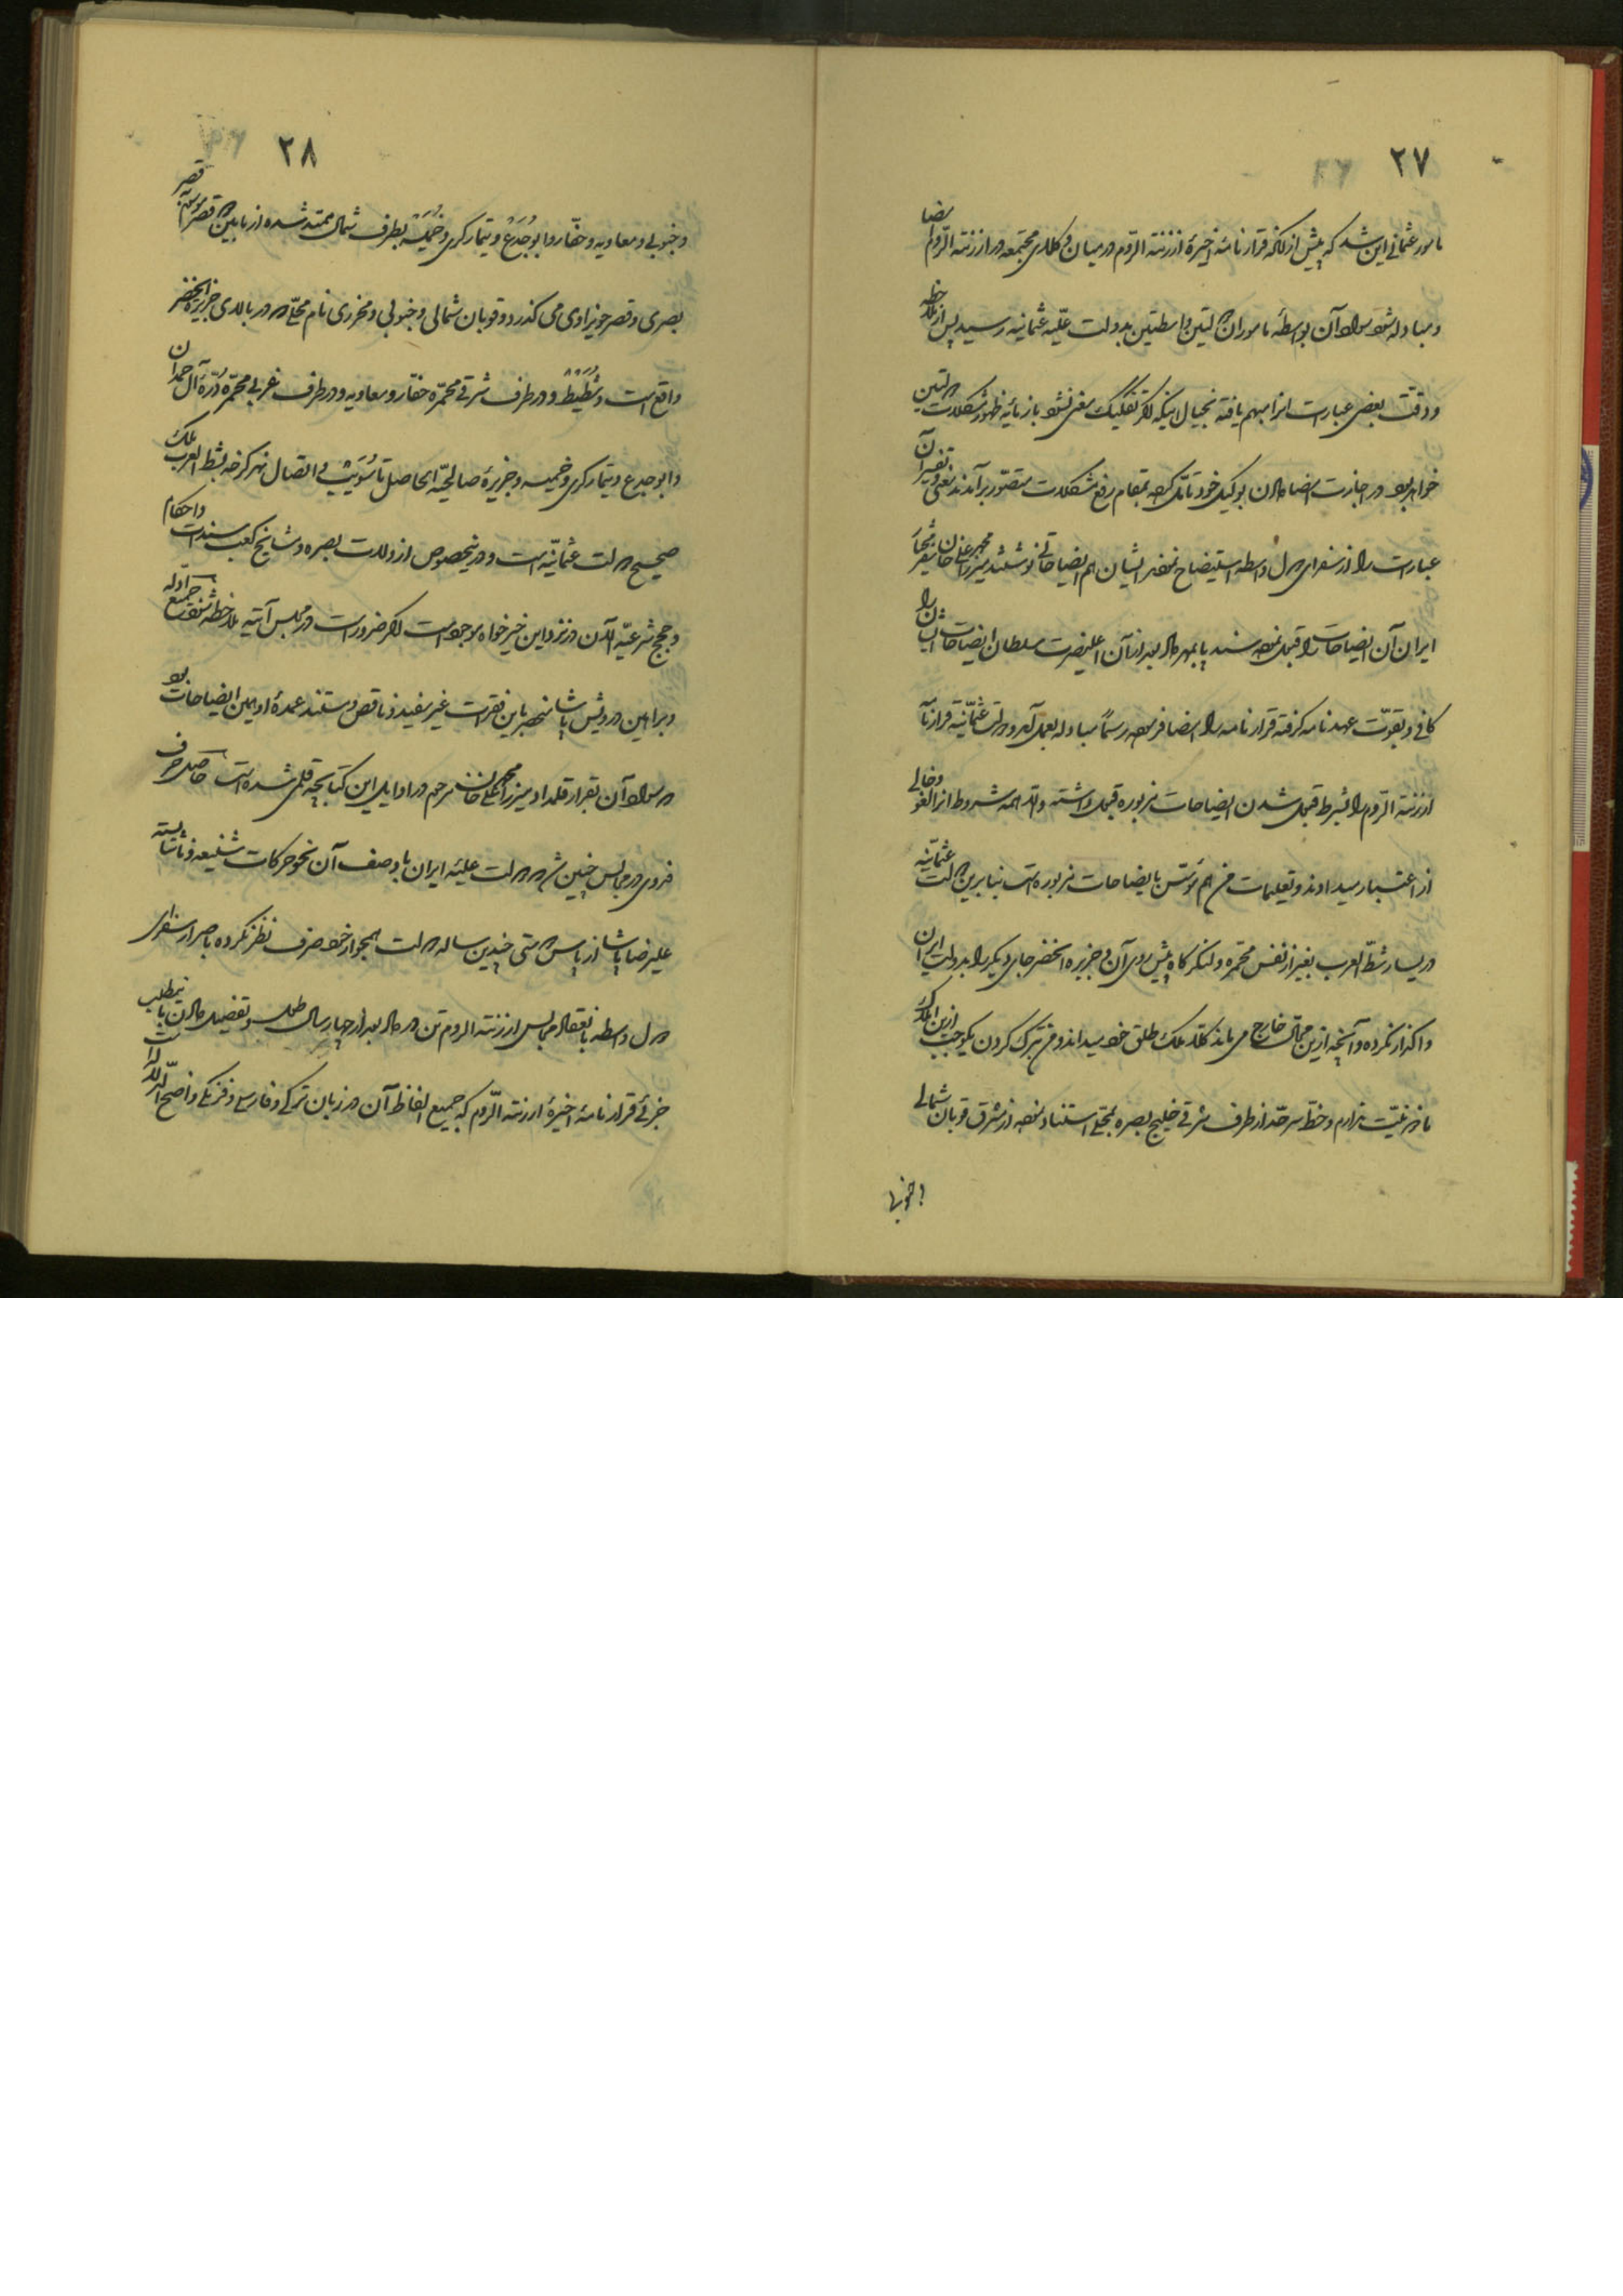 ۲۷
مامور عثمانی این شد که پیش از آنکه قرارنامهٔ اخیرهٔ ارزنته الروم در میان وکلای مجتمعه در ارزنته الروم امضا
و مبادله شود سواد آن بواسطهٔ ماموران دولتین واسطتین بدولت علیّه عثمانیه رسید پس از ملاحظه
و دقت بعضی عبارت آنرا مبهم یافته بخیال اینکه اگر تفکیک معنی نشود باز مایهٔ ظهور مشکلات دولتین
خواهد بود در اجازت امضا دادن بوکیل خود تأمل کرده بمقام رفع مشکلات متصوّر برآمدند یعنی تفسیر آن
عبارت را از سفرای دول واسطه استیضاح نموده ایشان هم ایضاحاتی نوشتند میرزا محمد علی خان سفیر مختار
ایران آن ایضاحات را قبول نموده سند پا بمهر داد بعد از آن اعلیحضرت سلطان ایضاحات ایشان را
کافی و بقوّت عهدنامه گرفته قرارنامه را امضا فرموده رسماً مبادله بعمل آمد و دولت عثمانیّه قرارنامهٔ
ارزنته الروم را بشرط قبول شدن ایضاحات مزبوره قبول داشته و الا همه شروط آنرا لغو و خالی
از اعتبار میداند و تعلیمات من هم مؤسّس بایضاحات مزبوره است بنابرین دولت عثمانیّه
در یسار شطّ العرب بغیر از نفس محمّره و لنگرگاه پیش روی آن و جزیرة الخضر جای دیگر را بدولت ایران
واگذار نکرده و آنچه ازین محال خارج می ماند کلاً ملک طلق خود میداند و من بترک کردن یکوجب ازین املاک
ماذونیّت ندارم و خطّ سرحدّ از طرف شرقی خلیج بصره بمحلّی استناد نموده از شرق قوبان شمالی
و جنوبی
۲۸
و جنوبی و معاویه و حفّار و ابوجدع و یتمارکری و خمیسه بطرف شمال ممتد شده از مابین دو قصر موسوم به قصر
بصری و قصر حویزاوی می گذرد و قوبان شمالی و جنوبی و مخرزی نام محلّی که در بالای جزیرة الخضر
واقع است و شطیط و در طرف شرقی محمّره حفّار و معاویه و در طرف غربی محمّره دُرّهٔ آل حمدان
و ابوجدع و یتمارکری و خمیسه و جزیرهٔ صالحیّه الی حاصل تا شویب و اتصال نهر کرخه بشط العرب ملک
صحیح دولت عثمانیّه است و درینخصوص از ولات بصره و مشایخ کعب سندات و احکام
و حجج شرعیّه الآن در نزد این خیرخواه موجود است اگر ضرور است در مجلس آتیه ملاحظه شود جمیع ادله
و براهین درویش پاشا منحصر باین فقرات غیر مفید و ناقص و مستند عمدهٔ او همین ایضاحات بود
که سواد آن بقرار قلمداد میرزا محمد علی خان مرحوم در اوایل این کتابچه قلمی شده است حاصل حرف
فدوی در مجالس چنین شد که دولت علیهٔ ایران با وصف آن نحو حرکات شنیعه و ناشایسته
علیرضا پاشا از پاس دوستی چندین ساله دولت همجوار خود صرف نظر نکرده باصرار سفرای
دول واسطه بانعقاد مجالس ارزنته الروم تن در داد بعد از چهار سال طول و تفصیل دادن باینمطلب
جزئی قرارنامهٔ اخیرهٔ ارزنته الروم که جمیع الفاظ آن در زبان ترکی و فارسی و فرنگی واضح الدلاله است